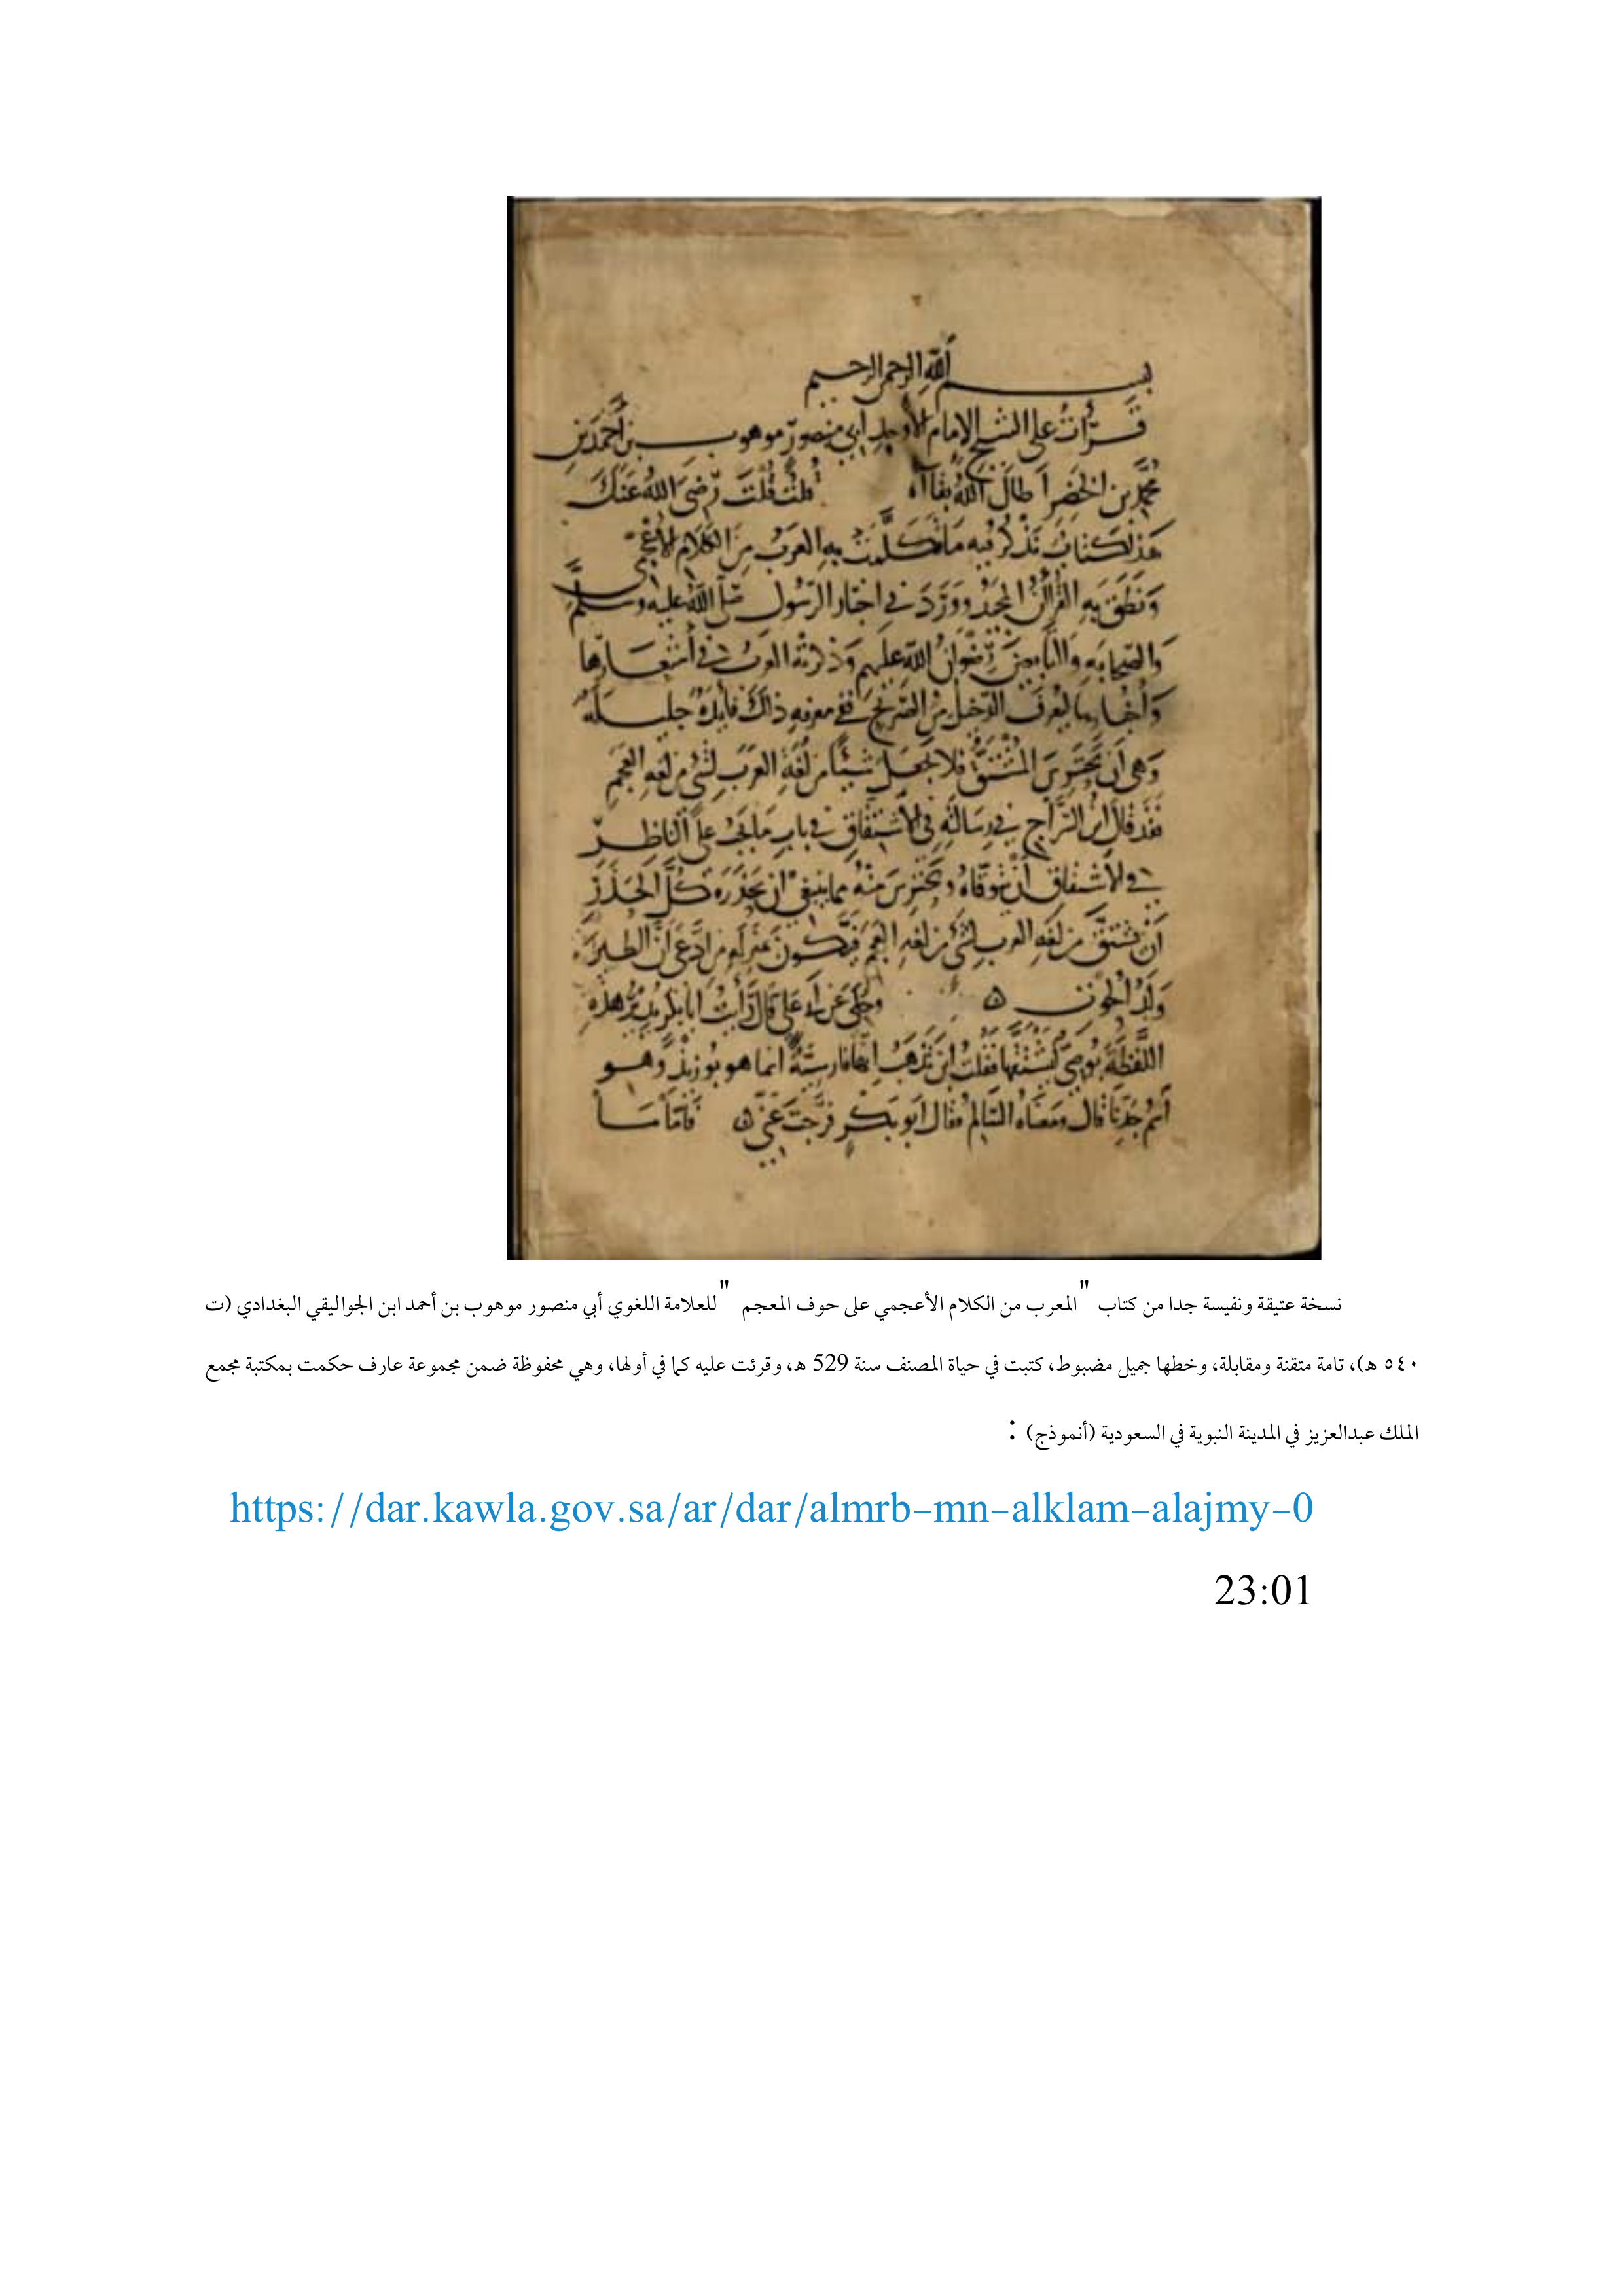 بسم الله الرحمن الرحيم
قرأت على الشيخ الإمام الأوحد أبي منصور موهوب بن أحمد بن
محمد بن الخضر أطال الله بقاءه قلت قلت رضي الله عنك
هذا كتاب نذكر فيه ما تكلمت به العرب من الكلام الأعجمي
ونطق به القرآن المجيد وورد في أخبار الرسول صلى الله عليه وسلم
والصحابة والتابعين رضوان الله عليهم وذكرته العرب في أشعارها
وأخبارها ليعرف الدخيل من الصريح ففي معرفة ذلك فايدة جليلة
وهي أن يحترس المشتق فلا يجعل شيئا من لغة العرب لشيء من لغة العجم
فقد قال ابن السراج في رسالته في الاشتقاق في باب ما يجب على الناظر
في الاشتقاق أن يتوقاه ويحترس منه مما ينبغي أن يحذره كل الحذر
أن يشتق من لغة العرب لشيء من لغة العجم فيكون بمنزلة من ادعى أن الطير
ولد الحوت وحكي عن أبي علي قال رأيت أبا بكر يدير هذه
اللفظة بوصي ليشتقها فقلت أين تذهب إنها فارسية إنما هو بوزيذ وهو
اسم جدنا قال ومعناه السالم فقال أبو بكر فرجت عني فأما ما
نسخة عتيقة ونفيسة جدا من كتاب "المعرب من الكلام الأعجمي على حوف المعجم " للعلامة اللغوي أبي منصور موهوب بن أحمد ابن الجواليقي البغدادي (ت
٥٤٠ هـ)، تامة متقنة ومقابلة، وخطها جميل مضبوط، كتبت في حياة المصنف سنة 529 هـ، وقرئت عليه كما في أولها، وهي محفوظة ضمن مجموعة عارف حكمت بمكتبة مجمع
الملك عبدالعزيز في المدينة النبوية في السعودية (أنموذج) :
https://dar.kawla.gov.sa/ar/dar/almrb-mn-alklam-alajmy-0
23:01